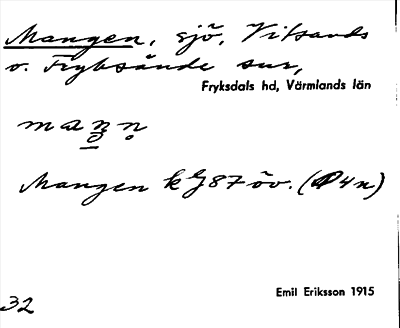 Mangen, sjö, Vitsands
o. Fryksände snr,
Fryksdals hd, Värmlands län
Mangen kg 87 öv. (4n)
Emil Eriksson 1915
32